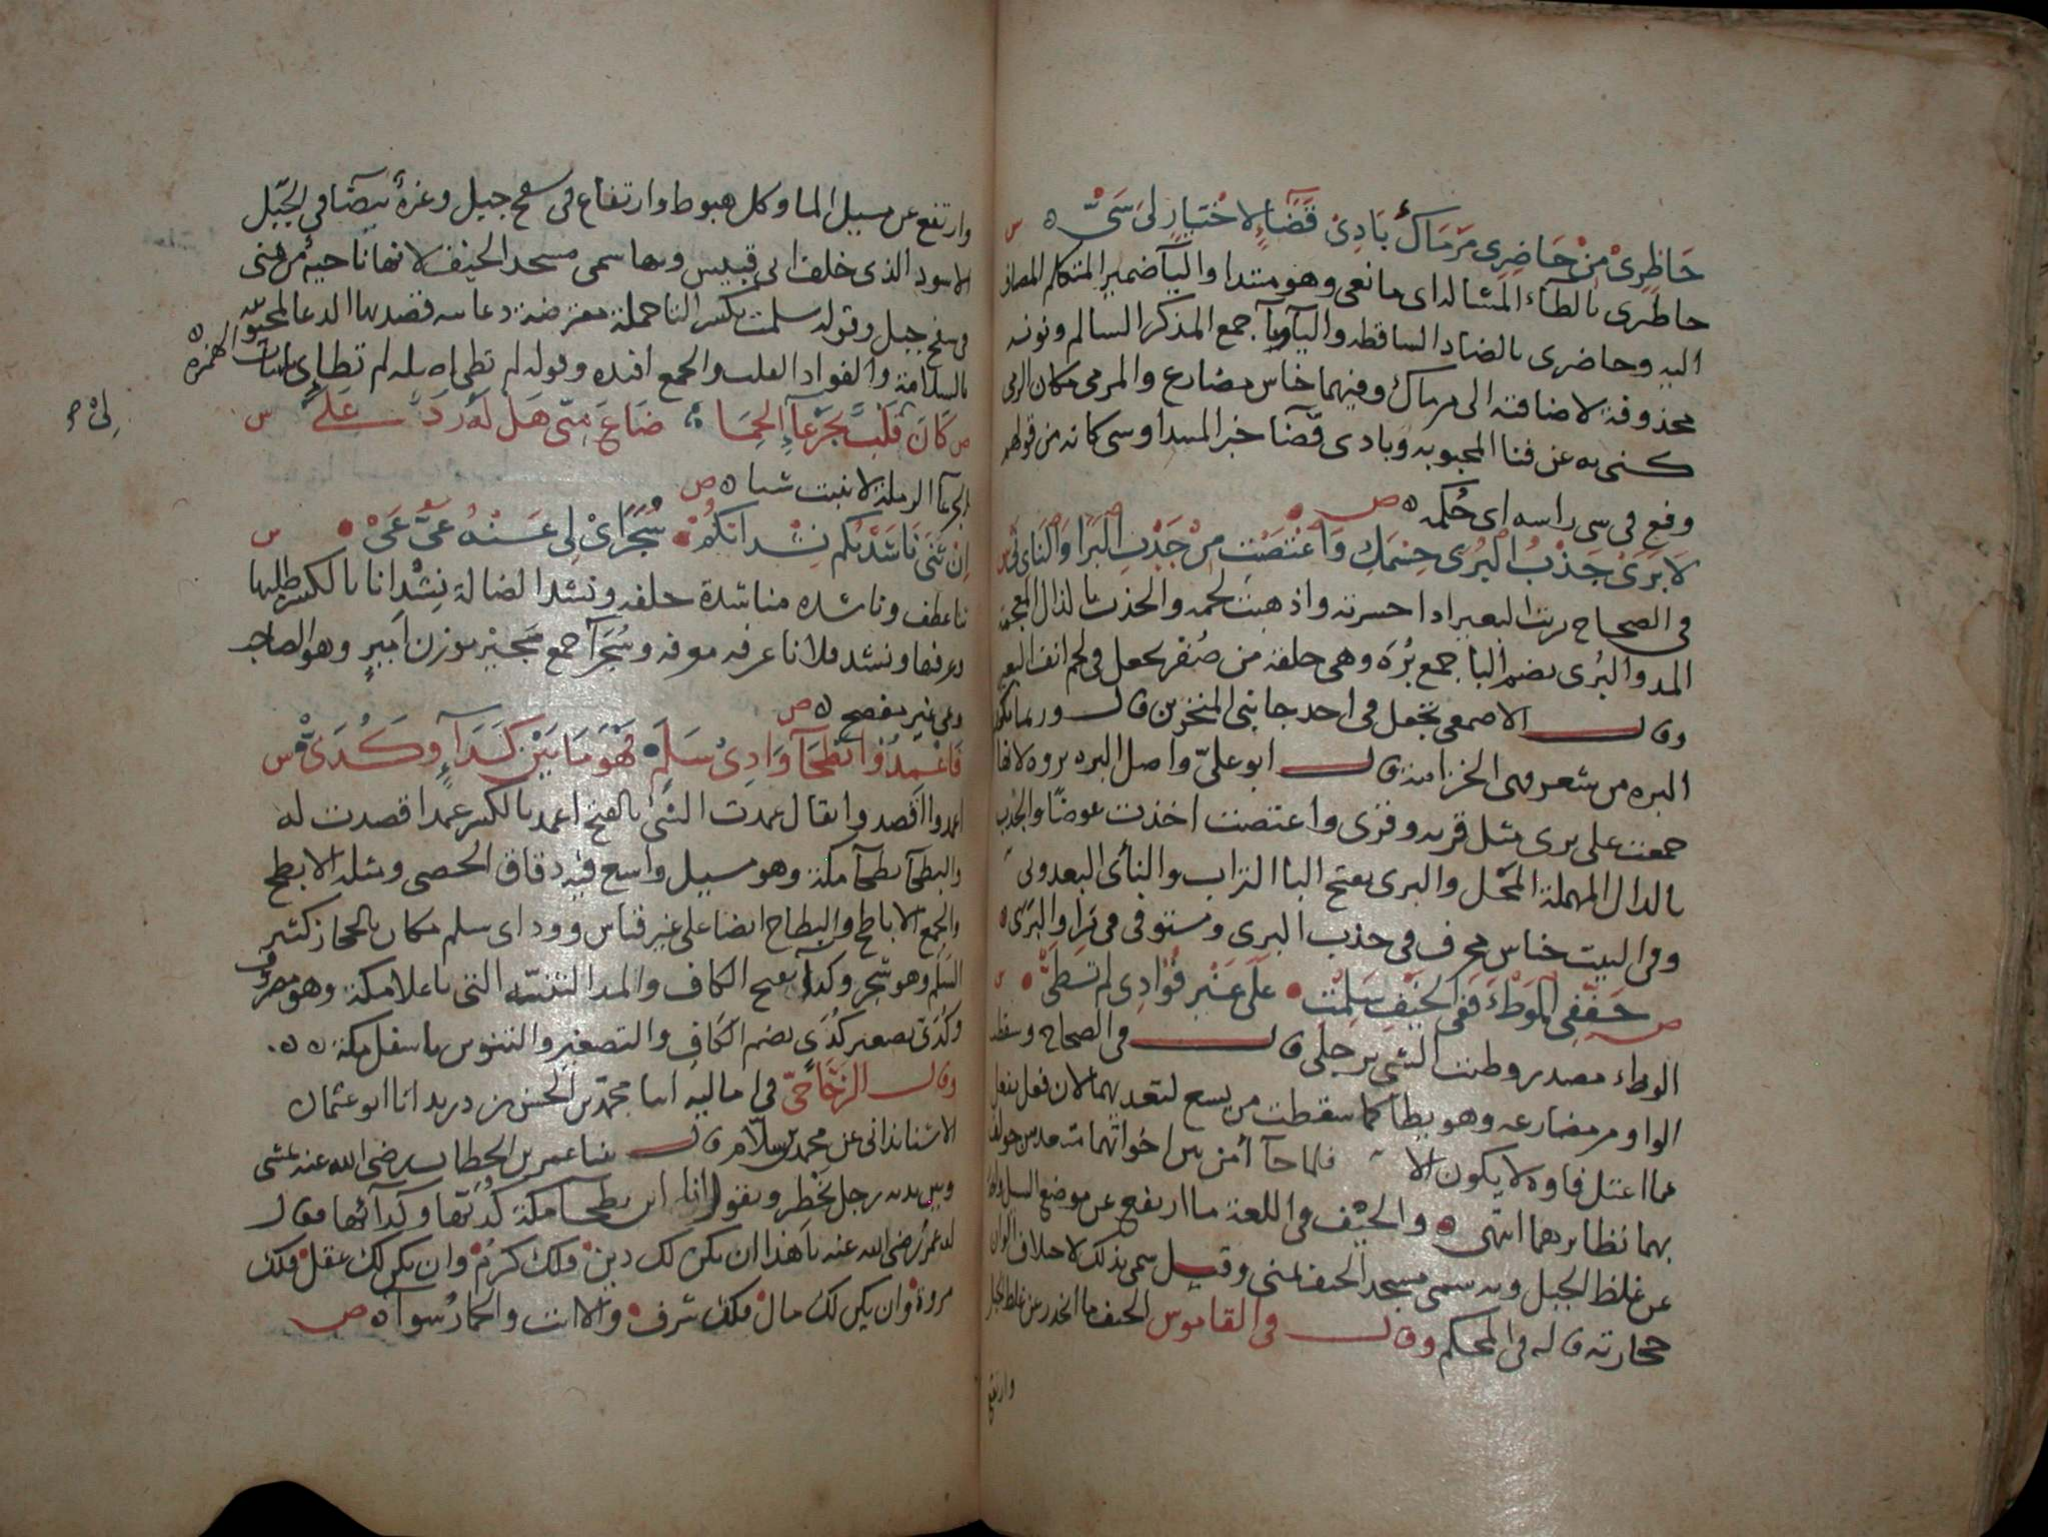 حَاظِرِىْ مِنْ حَاضِرِى مَرْمَاكِ بَادِىْ قَضَاءٍ لاخْتِيَارٍ لىَ شَىّْ ه س
حاظرى بالظاء المشالة اى مانعى وهو مبتدا واليآ ضمير المتكلم المضاف
اليه وحاضرى بالضاد الساقطه واليآ ويآ جمع المذكر السالم ونونه
محذوفة لاضافته الى مرماك وفيهما جناس مضارع والمرمى مكان الرمى
كنى به عن فنا المحبوبه وبادى قضآ خبر المبتدا وسى كانه من قولهم
وقع فى سى راسه اى حُكمه ه ص
لَا بَرَىْ جَذْبُ البُرَى جِسْمَكِ وَاعْتَضْتِ مِنْ جَدْبِ البَرَا وَالنَاى نَىْ س
فى الصحاح بريت البعير اذا حسرته واذهبت لحمه والجذب بالذال المعجمة
المد والبُرى بضم البا جمع بُرَه وهى حلقة من صُفر تجعل فى لحم انف البعير
وقال الاصمعى تجعل فى احد جانبى المنخرين قال وربما تكون
البره من شعر فهى الخزامة قال ابو علىّ واصل البره بروه لانها
جمعت على برى مثل قريه وقرى واعتضت اخذت عوضًا والجدب
بالدال المهملة المحْل والبرى بفتح البا التراب والنأى البعد ونى
وفى البيت جناس محرف فى جذب البرى ومستوفى فى برا والبَرى ه
ص خَفِّفِى الوَطْءَ فَفى الخَيْفِ سَلِمْتِ عَلَى غَيْرِ فُؤَادِى لم تَطَىّْ س
الوطء مصدر وطئت الشى برجلى قال فى الصحاح وسقطت
الواو من مضارعه وهو يطا كما سقطت من يسع لتعديهما لان فعل يفعل
مما اعتل فاوه لا يكون الا فلما جآ أمن بين اخواتهما متعديين خولف
بهما نظايرهما انتهى ه والخيْف فى اللغة ما ارتفع عن موضع السيل وانحدر
عن غلظ الجبل وبه سمى مسجد الخيف بمنى وقيل سمى بذلك لاختلاف الوان
حجارته قاله فى المحكم وقال فى القاموس الخيف ما انحدر عن غلظ الجبل
وارتفع
وارتفع عن مسيل الما وكل هبوط وارتفاع فى سفح جبل وغرةٌ بيضآ فى الجَبَل
الاسود الذى خلف ابى قبيس وبها سمى مسجد الخيف لانها ناحية من منى
فى سفح جبل وقوله سلمت بكسر التا جملة معترضة دعابيه قصد بها الدعا لمحبوبته
بالسلامة والفواد القلب والجمع افئده وقوله لم تطى اصله لم تطاى باثبات الهمزة ه
ص كَانَ لى قَلْبٌ بِجَرْعَآءِ الحِمَا ضَاعَ مِنّى هَلْ لَهُ رَدٌّ عَلَىّْ س
لىْ ص
الجرعآ الرملة لا تنبت شيا ه ص
اِنْ ثَنَى نَاشَدْتُكُم نِشْدَانَكُمْ سُجَرَآىْ لِى عَنْهُ عَىّ عَىْ س
ثنا عطف وناشده مناشدة حلفه ونشد الضالة نِشْدانا بالكسر طلبها
وعرفها ونشد فلانا عرفه معرفه وسُجَرآ جمع سَجير بوزن اَمِيرٍ وهو الصاحب
وعى غير مفصح ه ص
فَاعْهَدُوا بَطْحَآ وَادِىْ سَلَمٍ فَهْوَ مَا بَيْنَ كَدَآءٍ وَكُدَىّْ س
اعمدوا اقصدوا يقال عمدت الشى بالفتح اعمد بالكسر عمدا قصدت له
والبطحآ بطحآ مكة وهو مسيل واسع فيه دقاق الحصى ومثله الابطح
والجمع الاباطح والبطاح ايضا على غير قياس ووداى سلم مكان بالحجاز كثير
السَلَم وهو شجر وكدآ بفتح الكاف والمد الثنيّه التى باعلا مكة وهو معروف
وكُدَىّ تصغير كُدَى بضم الكاف والتصغير والتنوين باسفل مكة ه ه
وقال الزَجّاجىّ فى اماليه انبا محمّد بن الحسن بن دريد انا ابو عثمان
الاشناندانى عن محمد بن سلّام قال بينا عمر بن الخطاب رضى الله عنه يمشى
وبين يديه رجل يخْطر ويقول انا ابن بطحآ مكة كُدَيّها وكدآئها فقال
له عمر رضى الله عنه يا هذا ان يكن لك دين فلك كرمٌ وان يكن لك عقل فلك
مروة وان يكن لك مال فلك شرف والا انت والحمار سوآ ه ص